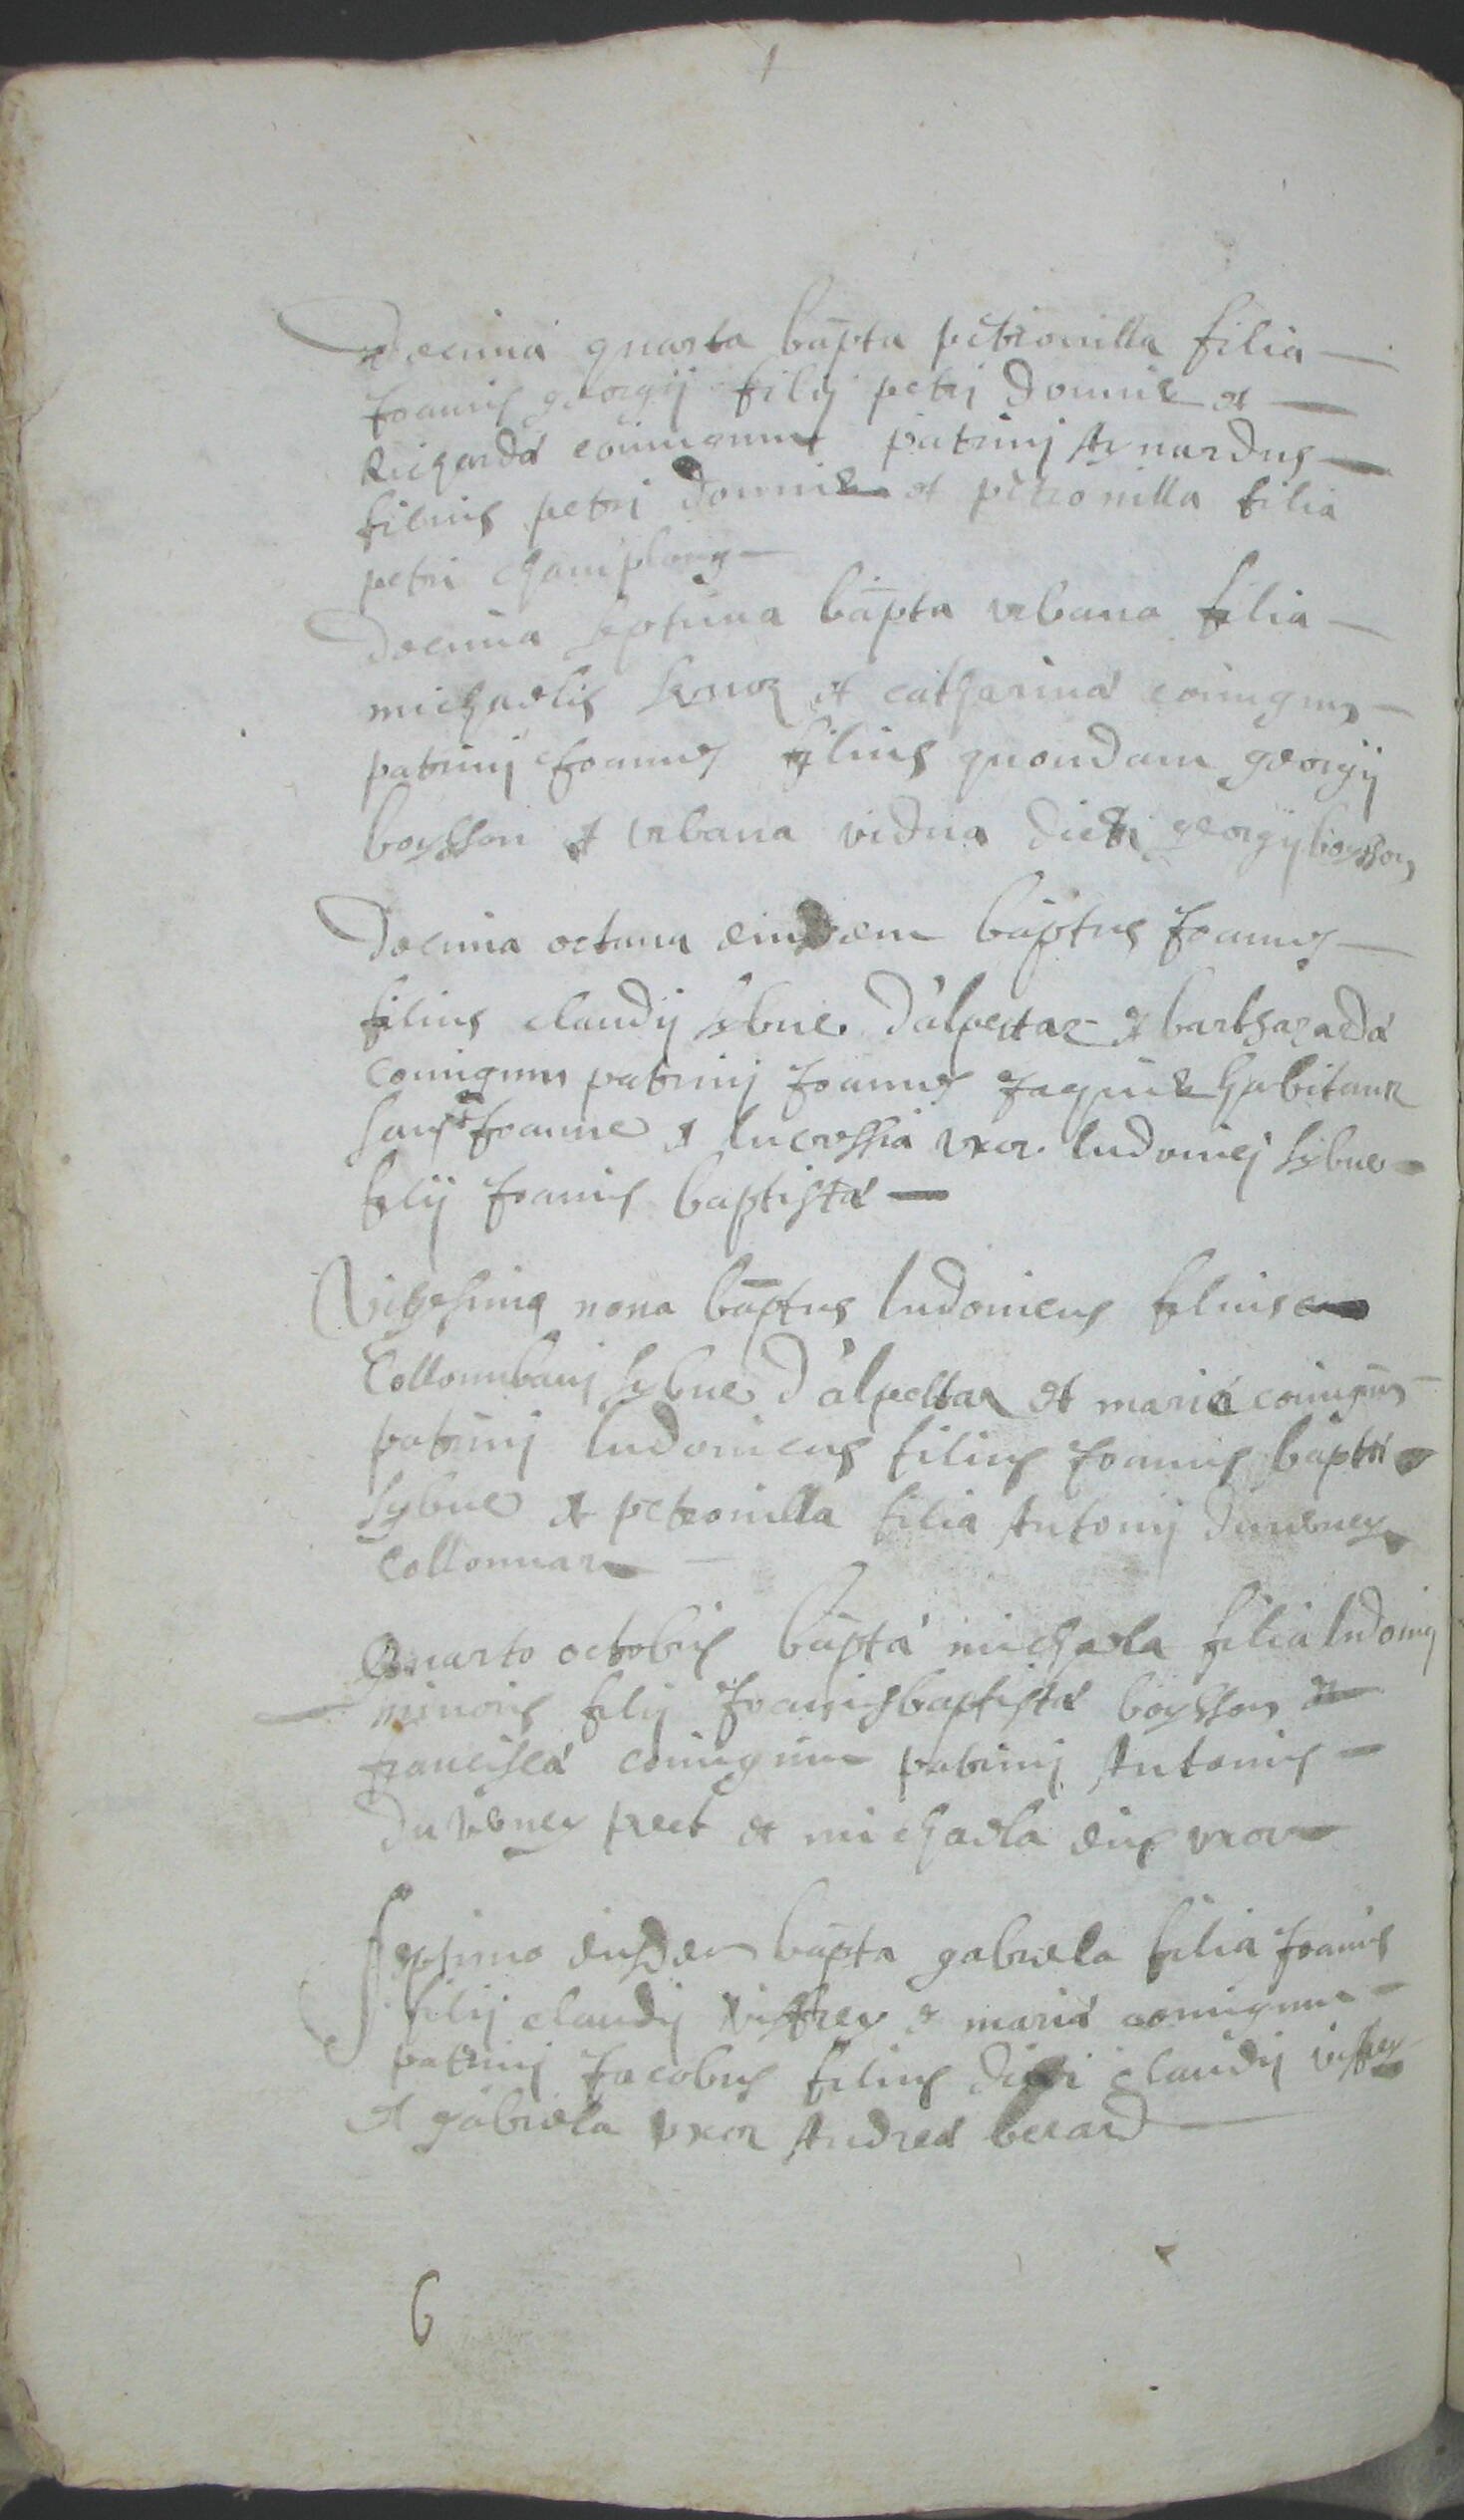 Decima quarta bapta petronilla filia
Joannis georgij filij petri Donnie et
Richardá coniugum patrinj Aynardus
filius petri Donnie et petronilla filia
petri champlong
Decima septima bapta urbana filia
michaelis et catharina coniugum
patrinj Joannes filius quondam georgij
boysson et urbana vidua dicti georgij boysson
Decima octava eiusdem baptus Joannes
filius claudij sybue D'alpettaz et
coniugum patrinj Joannes habitans
Joanne et lucressia uxor ludovicj sybue
filij Joannis baptistá
Vigesima nona baptus ludovicus filius
Collombanj sybue D'alpettaz et mariá coniugum
patrinj ludovicus filius Joannis
sybue et petronilla filia Antonij
Quarto octobris baptá michaela filia ludovicj
minoris filij Joannis baptistá boysson et
franciscá coniugum patrinj Antonius
et michaela eius uxor
Septimo eiusdem bapta gabriela filia Joannis
filij claudij viffrey et mariá coniugum
patrinj Jacobus filius dicti claudij viffrey
et gabriela uxor Andreá berard
6